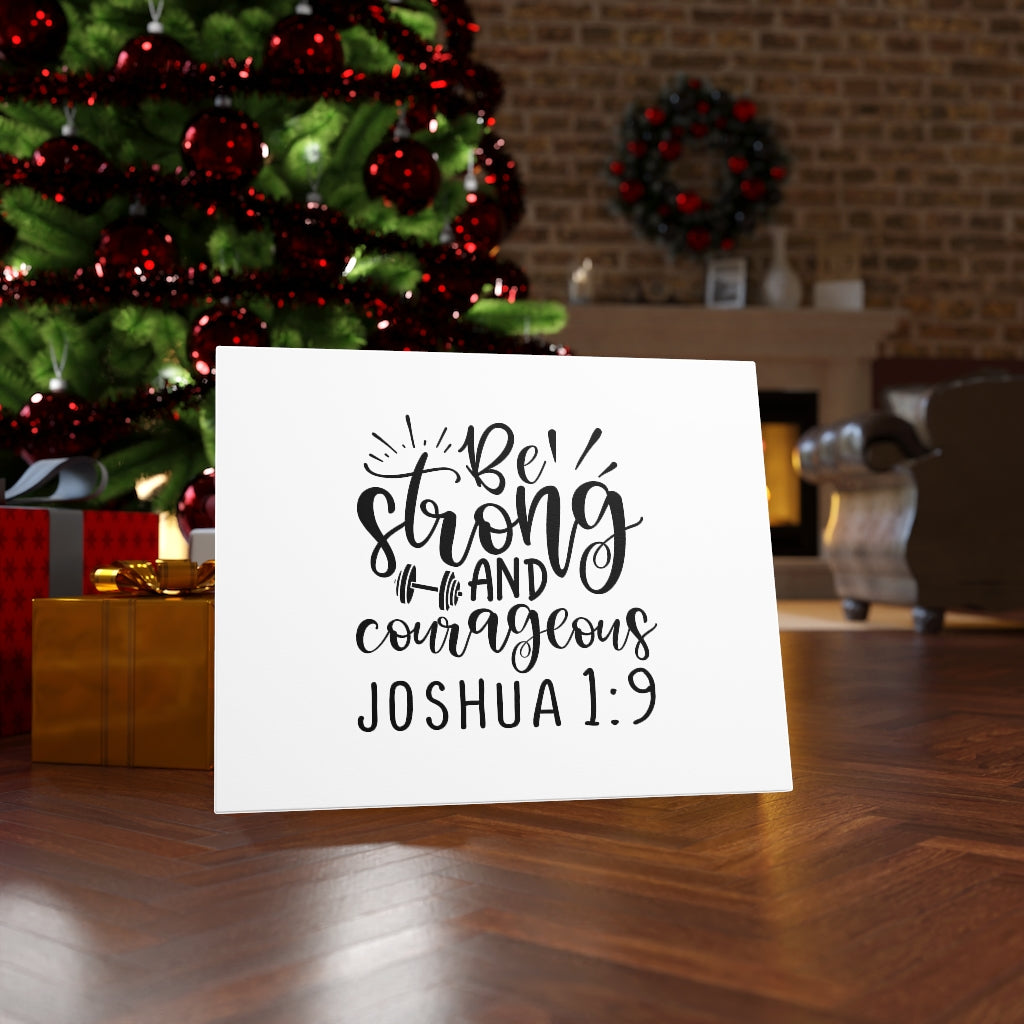 Be
strong
AND
courageous
JOSHUA 1:9